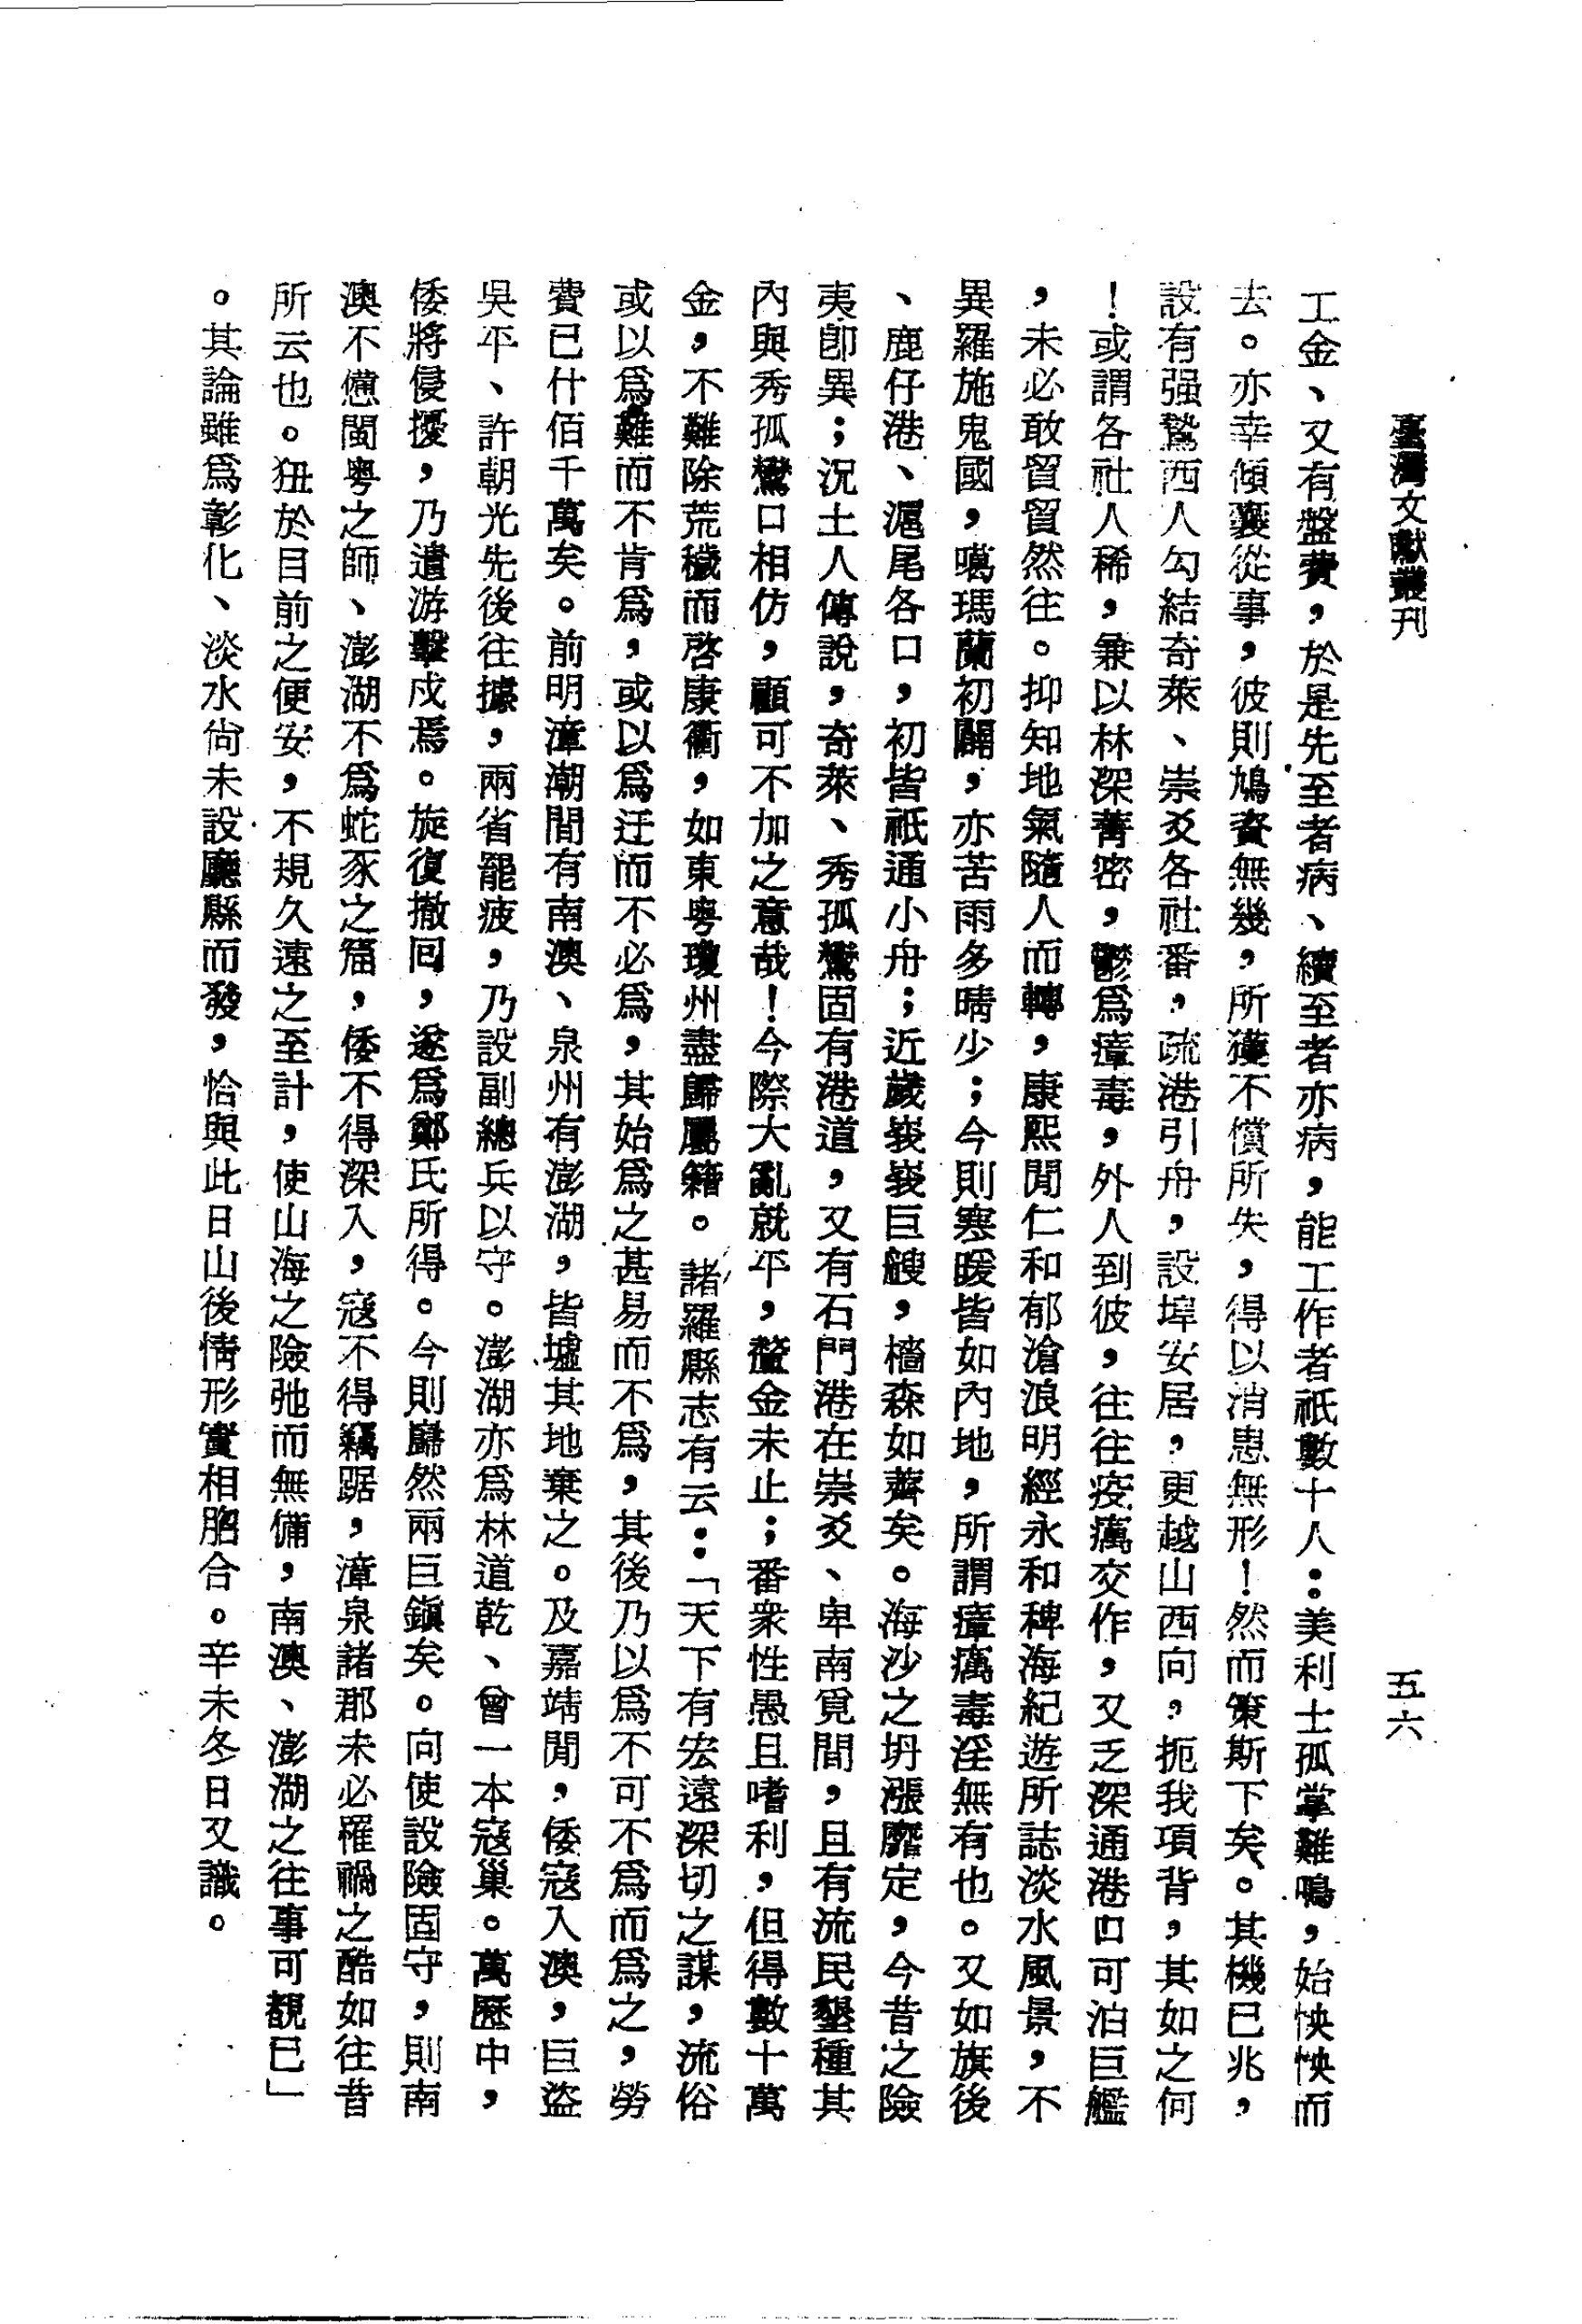 臺灣文獻叢刊
五六
工金、又有盤費，於是先至者病、續至者亦病，能工作者祇數十人：美利士孤掌難鳴，始怏怏而
去。亦幸傾囊從事，彼則鳩資無幾，所獲不償所失，得以消患無形！然而策斯下矣。其機已兆，
設有强鷙西人勾結奇萊、崇爻各社番，疏港引舟，設埠安居，更越山西向，扼我項背，其如之何
！或謂各社人稀，兼以林深菁密，鬱爲瘴毒，外人到彼，往往疫癘交作，又乏深通港口可泊巨艦
，未必敢貿貿然往。抑知地氣隨人而轉，康熙閒仁和郁滄浪明經永和稗海紀遊所誌淡水風景，不
異羅施鬼國，噶瑪蘭初闢，亦苦雨多晴少；今則寒暖皆如內地，所謂瘴癘毒淫無有也。又如旗後
、鹿仔港、滬尾各口，初皆祇通小舟；近歲峩峩巨艘，檣森如薺矣。海沙之坍漲靡定，今昔之險
夷卽異；況土人傳說，奇萊、秀孤鸞固有港道，又有石門港在崇爻、卑南覓間，且有流民墾種其
內與秀孤鸞口相仿，顧可不加之意哉！今際大亂就平，釐金未止；番衆性愚且嗜利，但得數十萬
金，不難除荒穢而啓康衢，如東粤瓊州盡歸屬籍。諸羅縣志有云：「天下有宏遠深切之謀，流俗
或以爲難而不肯爲，或以爲迂而不必爲，其始爲之甚易而不爲，其後乃以爲不可不爲而爲之，勞
費已什佰千萬矣。前明漳潮間有南澳、泉州有澎湖，皆墟其地棄之。及嘉靖閒，倭寇入澳，巨盜
吳平、許朝光先後往據，兩省罷疲，乃設副總兵以守。澎湖亦爲林道乾、曾一本寇巢。萬曆中，
倭將侵擾，乃遣游擊戍焉。旋復撤回，遂爲鄭氏所得。今則巋然兩巨鎭矣。向使設險固守，則南
澳不憊閩粤之師、澎湖不爲蛇豕之窟，倭不得深入，寇不得竊踞，漳泉諸郡未必罹禍之酷如往昔
所云也。狃於目前之便安，不規久遠之至計，使山海之險弛而無備，南澳、澎湖之往事可覩已」
。其論雖爲彰化、淡水尙未設廳縣而發，恰與此日山後情形實相脗合。辛未冬日又識。